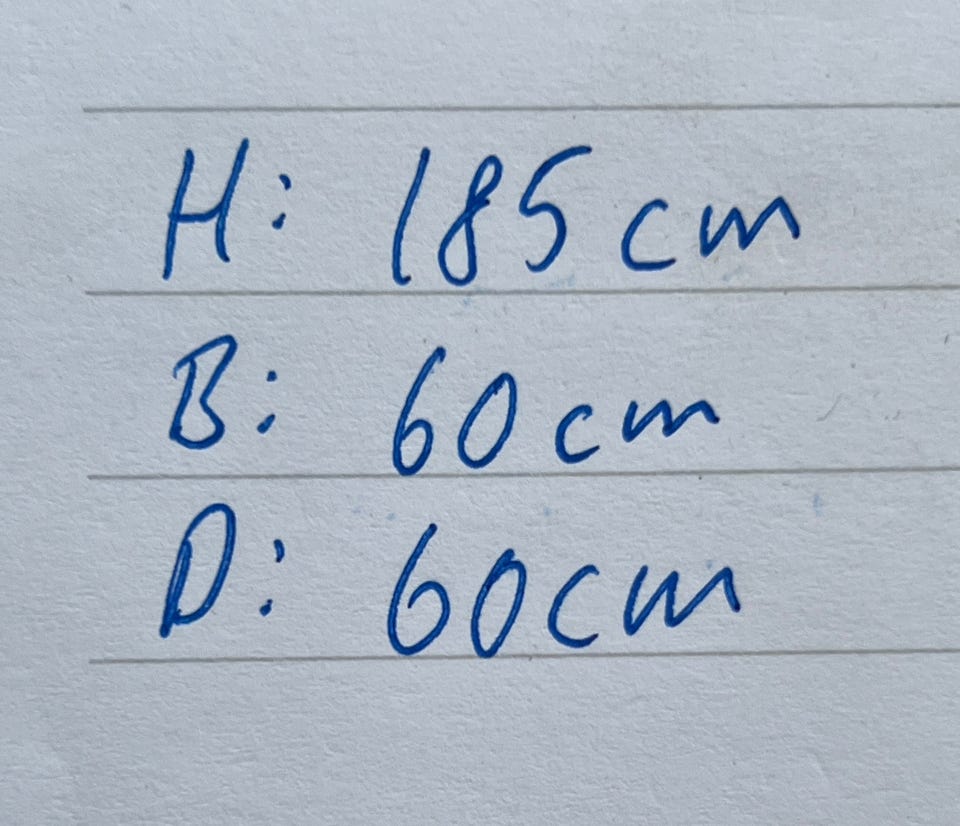 H: 185 cm
B: 60 cm
D: 60 cm